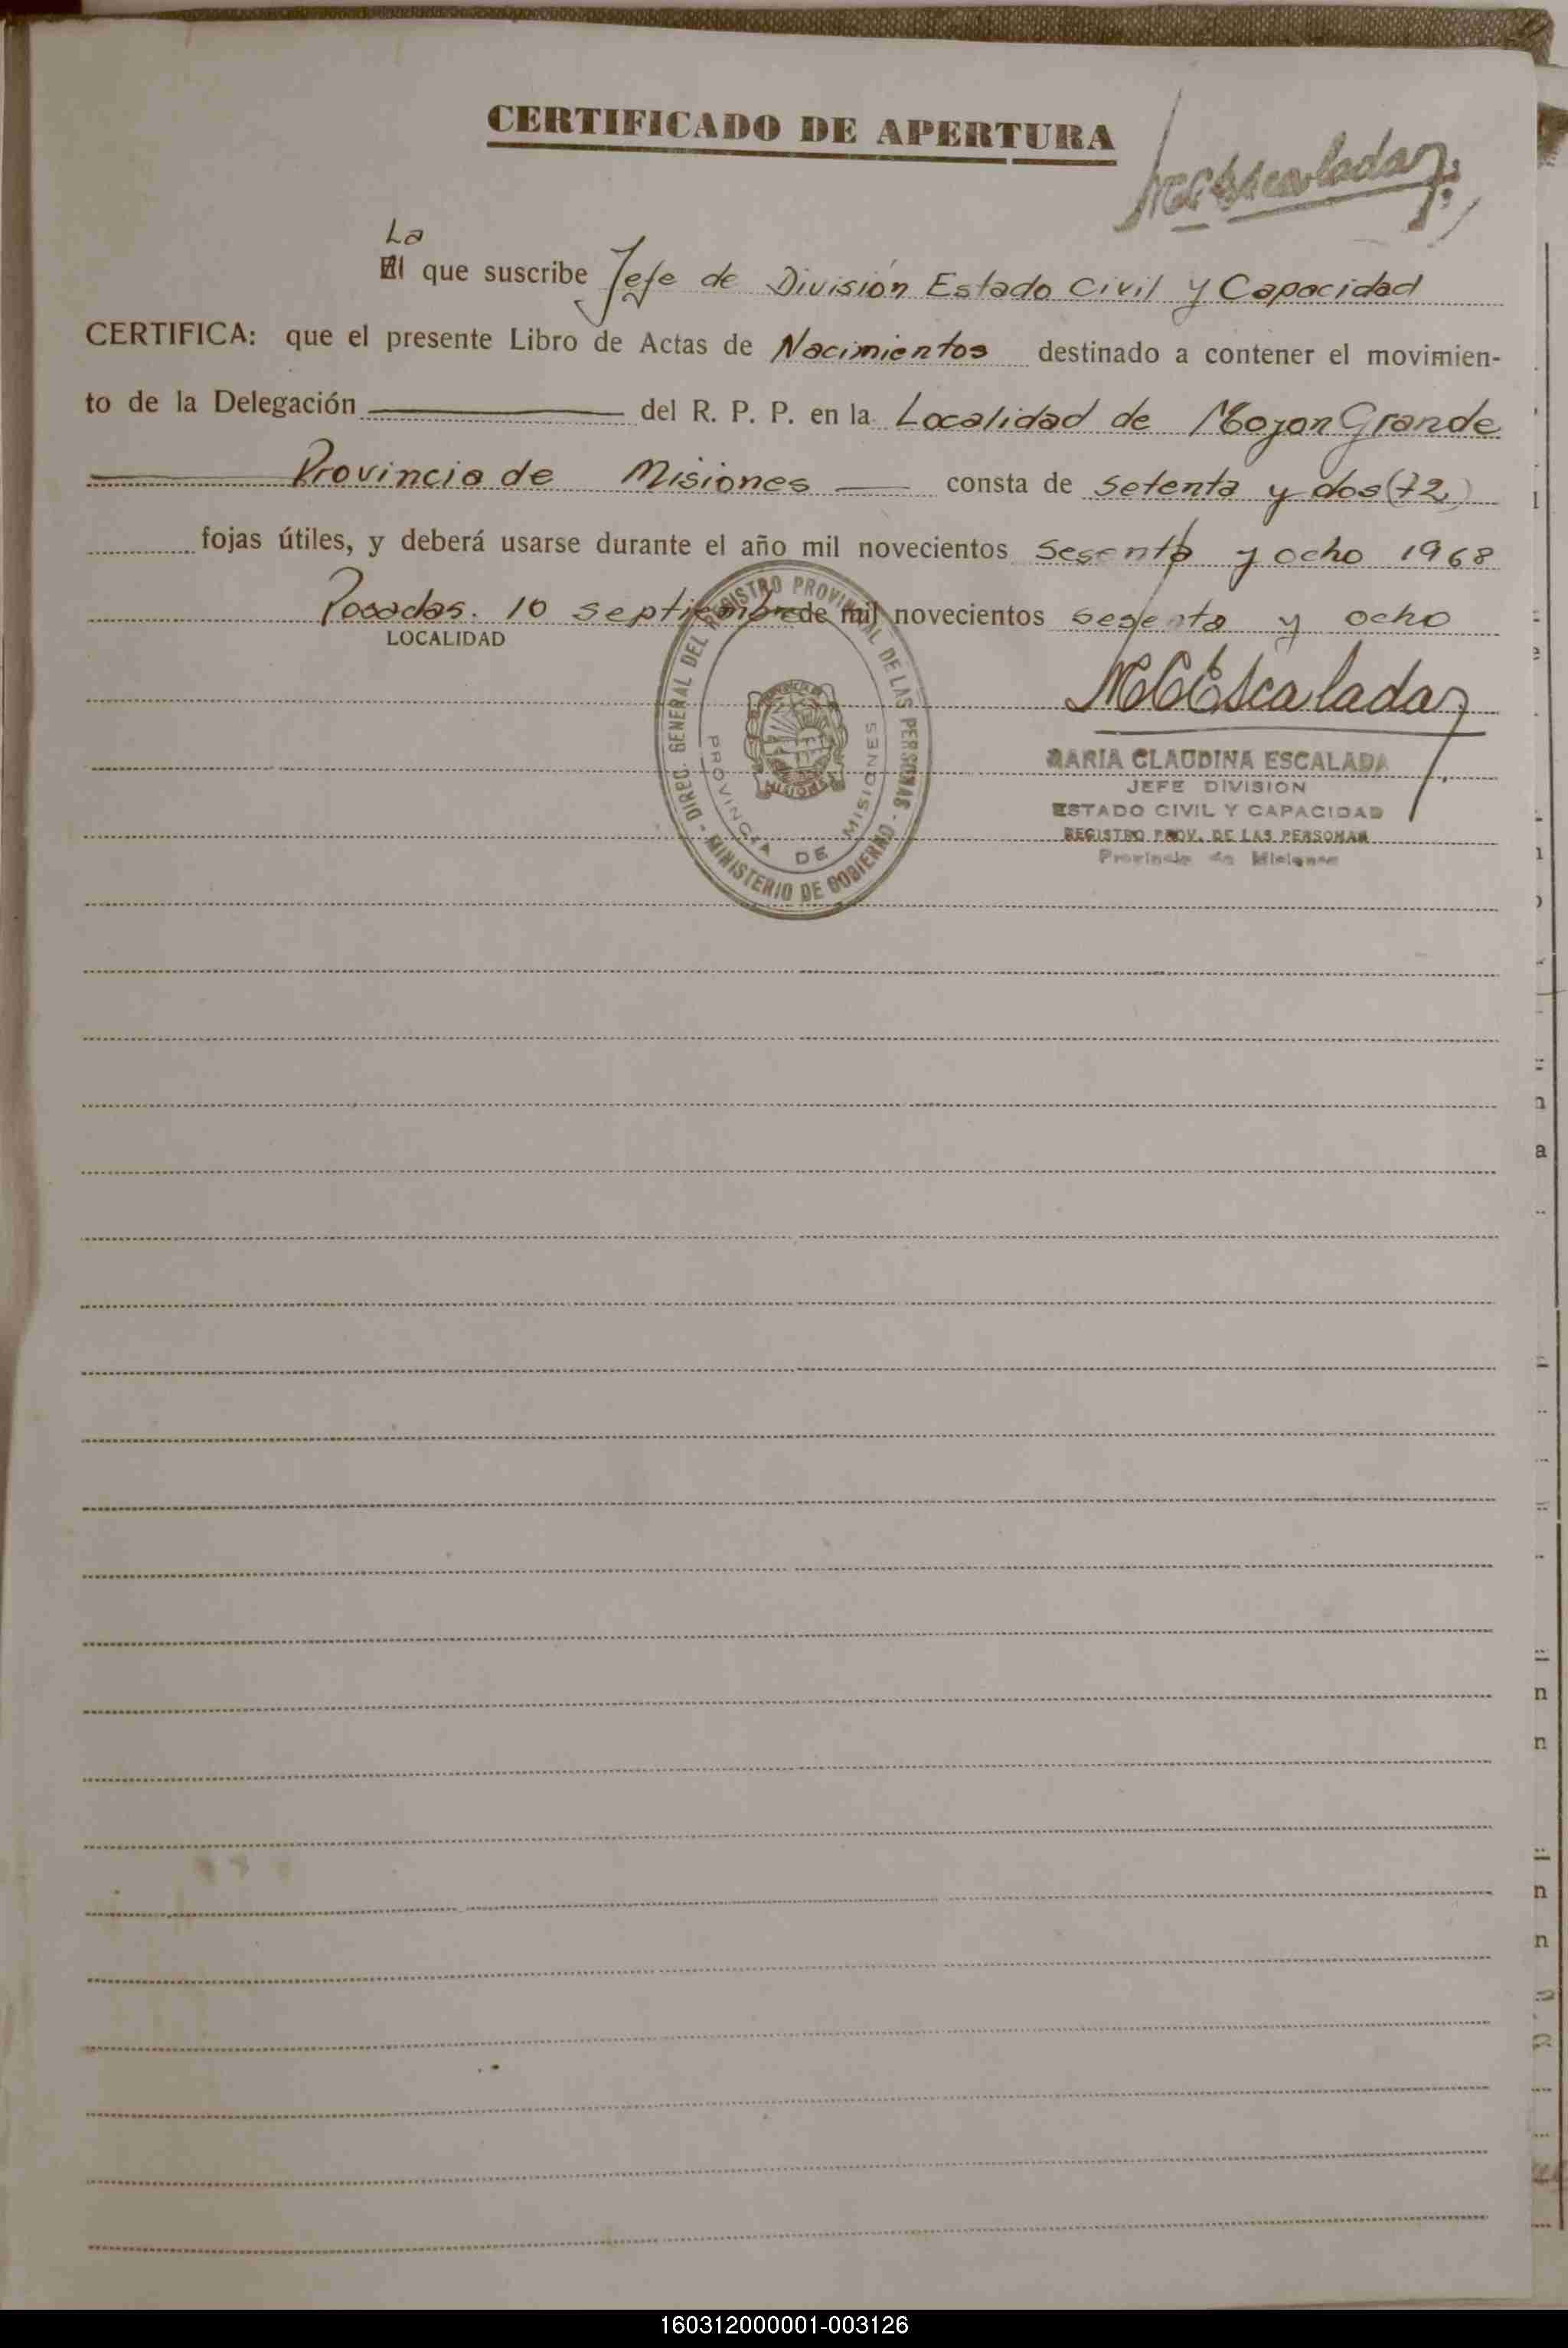 CERTIFICADO DE APERTURA
MCEscalada
La
El que suscribe Jefe de División Estado Civil y Capacidad
CERTIFICA: que el presente Libro de Actas de Nacimientos destinado a contener el movimien-
to de la Delegación del R. P. P. en la Localidad de Mojon Grande
Provincia de Misiones consta de setenta y dos (72)
fojas útiles, y deberá usarse durante el año mil novecientos sesenta y ocho 1968
Posadas. 10 septiembre de mil novecientos sesenta y ocho
LOCALIDAD
MCEscalada
MARIA CLAUDINA ESCALADA
JEFE DIVISION
ESTADO CIVIL Y CAPACIDAD
REGISTRO PROV. DE LAS PERSONAS
Provincia de Misiones
DIREC. GENERAL DEL REGISTRO PROVINCIAL DE LAS PERSONAS - MINISTERIO DE GOBIERNO -
PROVINCIA DE MISIONES
160312000001-003126